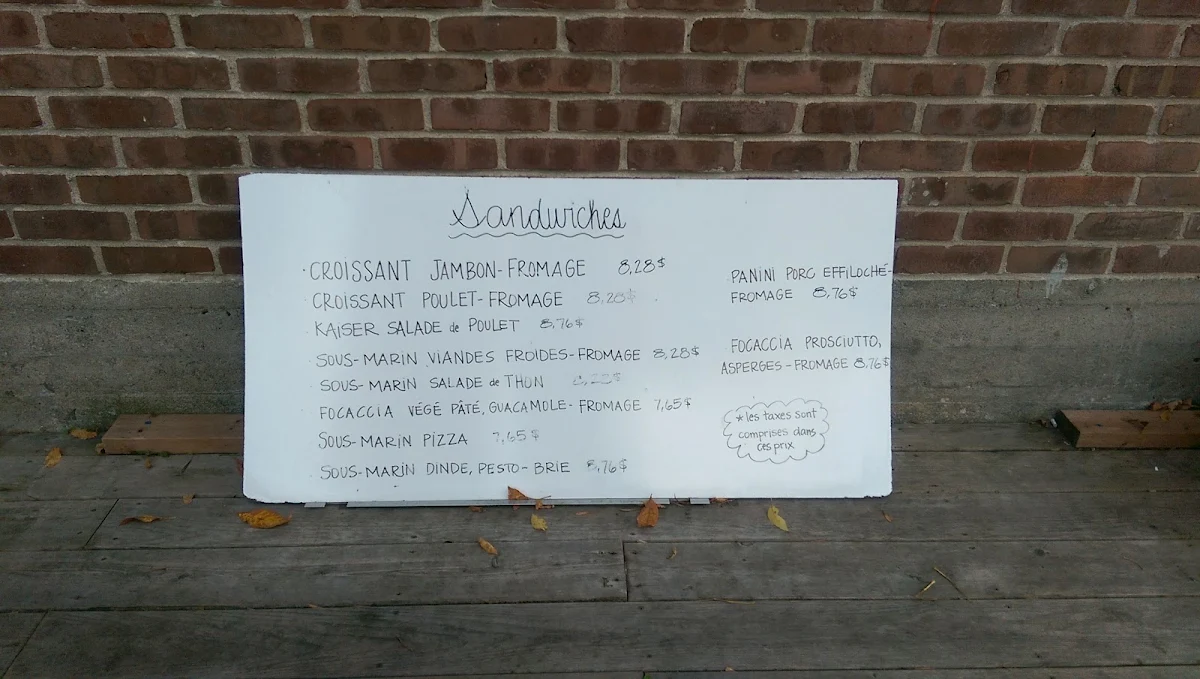 Sandwiches
· CROISSANT JAMBON-FROMAGE 8,28$
· CROISSANT POULET-FROMAGE 8,28$
· KAISER SALADE de POULET 8,76$
· SOUS-MARIN VIANDES FROIDES-FROMAGE 8,28$
· SOUS-MARIN SALADE de THON
· FOCACCIA VÉGÉ PÂTÉ, GUACAMOLE-FROMAGE 7,65$
· SOUS-MARIN PIZZA 7,65$
· SOUS-MARIN DINDE, PESTO-BRIE 8,76$
· PANINI PORC EFFILOCHÉ-
FROMAGE 8,76$
· FOCACCIA PROSCIUTTO,
ASPERGES-FROMAGE 8,76$
* les taxes sont
comprises dans
ces prix